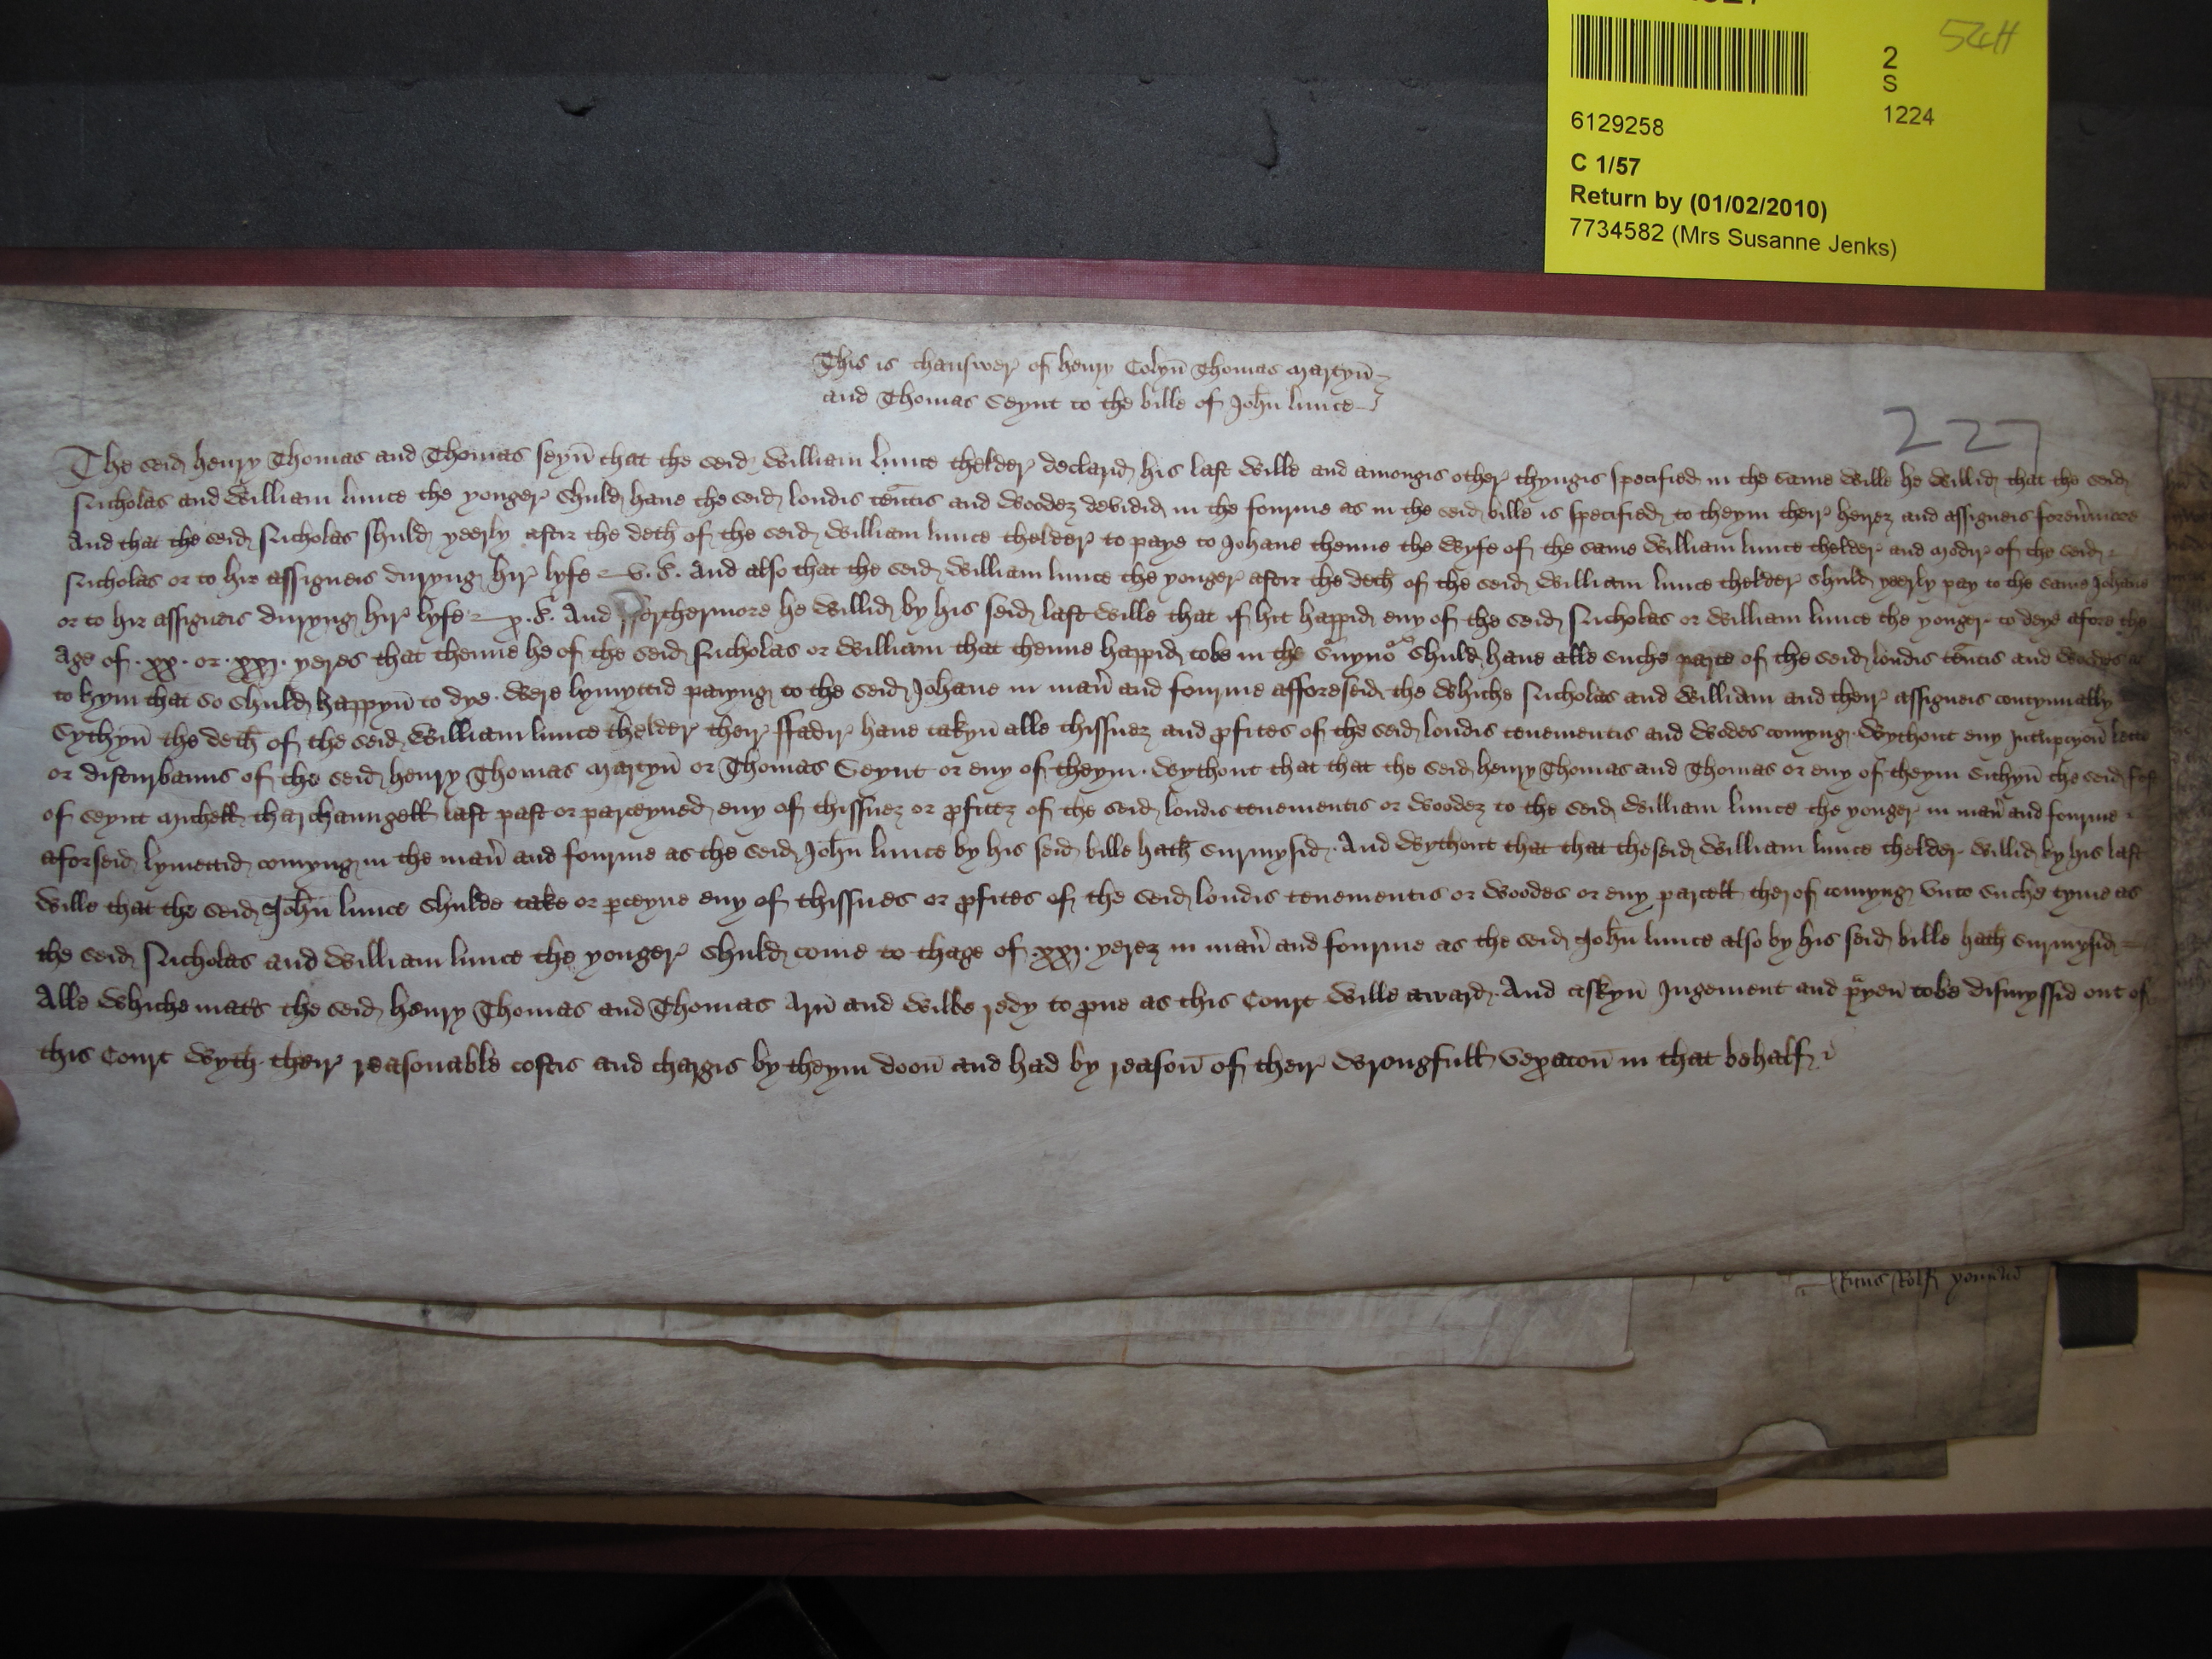 54H
2
S
1224
6129258
C 1/57
Return by (01/02/2010)
7734582 (Mrs Susanne Jenks)
This is thanswer of henry Colyn Thomas Martyn
and Thomas Seynt to the bille of John lunce
227
The seid henry Thomas and Thomas seyn that the seid William lunce thelder declarid his last wille and amongis other thyngis specified in the same wille he willid that the seid
Nicholas and William lunce the yonger shuld haue the seid londis tentis and woodez devidid in the fourme as in the seid bille is specified to theym their heirez and assigneis
And that the seid Nicholas shuld yeerly aftir the deth of the seid William lunce thelder to paye to Johane thenne the wyfe of the same William lunce thelder and modir of the seid
Nicholas or to hir assigneis duryng hir lyfe v. s. And also that the seid William lunce the yonger aftir the deth of the seid William lunce thelder shuld yeerly pay to the same Johane
or to hir assigneis duryng hir lyfe x. s. And forthermore he willid by his seid last wille that if hit happid eny of the seid Nicholas or William lunce the yonger to deye afore the
Age of .xx. or .xxj. yeres that thenne he of the seid Nicholas or William that thenne happid tobe in the shuld haue alle suche parte of the seid londis tentis and woodes as
to hym that so shuld happyn to dye. were lymyttid payyng to the seid Johane in man and fourme afforeseid the whiche Nicholas and William and their assigneis contynually
Sythyn the deth of the seid William lunce thelder their ffadir haue takyn alle thissuez and pfites of the seid londis tenementis and wodes comyng. Wythout eny lette
or disturbauns of the seid henry Thomas Martyn or Thomas Seynt or eny of theym. Wythout that that the seid henry Thomas and Thomas or eny of theym sithyn the seid fest
of seynt Michell tharchaungell last past or parceyued eny of thissuez or pfitez of the seid londis tenementis or woodez to the seid William lunce the yonger in man and fourme
aforseid lymettid comyng in the man and fourme as the seid John lunce by his seid bille hath surmysid. And wythout that that theseid William lunce thelder willid by his last
wille that the seid John lunce shulde take or pceyue eny of thissues or pfites of the seid londis tenementis or woodes or eny parcell therof comyng vnto suche tyme as
the seid Nicholas and William lunce the yonger shuld come to thage of .xxj. yerez in man and fourme as the seid John lunce also by his seid bille hath surmysid
Alle whiche mats the seid henry Thomas and Thomas Arn and wilbe redy to pue as this Court wille award. And askyn Jugement and pyen tobe dismyssid out of
this Court wyth their reasonable costis and chargis by theym doon and had by reason of their wrongfull vexacon in that behalf